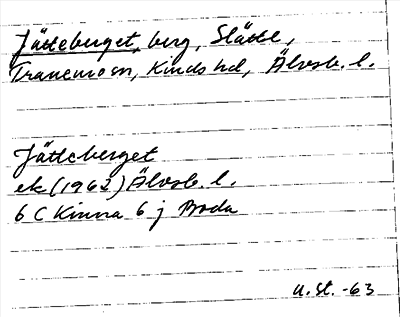 Jätteberget, berg, Slätte,
Tranemo sn, Kinds hd, Älvsb. l.
Jätteberget
ek (1962) Älvsb. l.
6 C Kinna 6 j Boda
U. St. -63